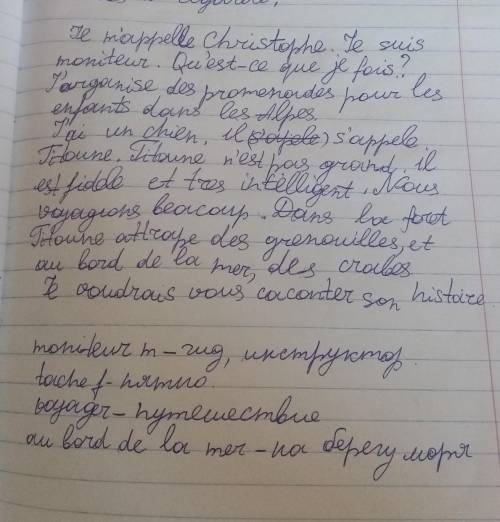 Je m'appelle Christophe. Je suis
moniteur. Qu'est-ce que je fois?
J'arganise des promenades pour les
enfants dans les Alpes.
J'ai un chien, il (s'apele) s'appele
Titoune. Titoune n'est pas grand, il
est fidèle et tres intelligent. Nous
voyagions beacoup. Dans la foret
Titoune attrape des grenouilles, et
au bord de la mer, des crabes
Je voudrais vous caconter son histaire.
moniteur m - гид, инструктор.
tache f - пятно.
voyager - путешествие
au bord de la mer - на берегу моря